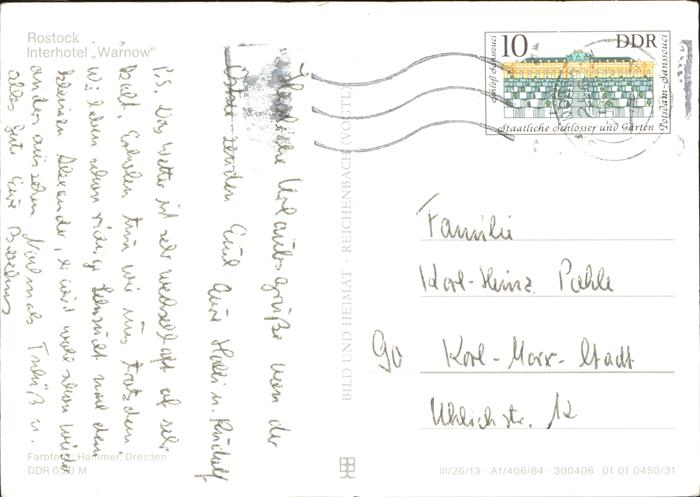 Rostock
Interhotel „Warnow"
Herzliche Urlaubsgrüße von der
Ostsee senden Euch Eure Halli u. Rudolf
P.S. Das Wetter ist sehr wechselhaft oft sehr
kalt, Erholen tun wir uns trotzdem.
Wir haben schon richtig Sehnsucht nach dem
kleinen Alexander, er wird wohl schon wieder
anders aussehen Nochmals Tschüß u.
alles Gute Eure
Farbfoto: Hammer, Dresden
DDR 0,20 M
BILD UND HEIMAT · REICHENBACH (VOGTL)
10
DDR
Schloß Sanssouci
Potsdam-Sanssouci
Staatliche Schlösser und Gärten
Familie
Karl-Heinz Pahle
90 Karl-Marx-Stadt
Uhlichstr. 12
III/26/13 · A1/406/84 · 300406 01 01 0450/31